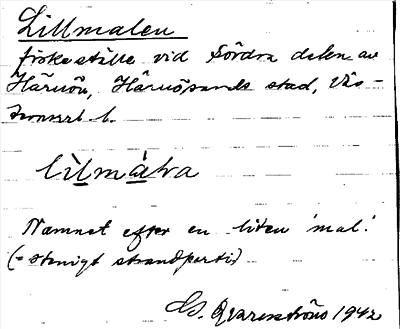 Lillmalen
fiskeställe vid södra delen av
Härnön, Härnösands stad, Väs-
ternorrl. l.
Namnet efter en liten 'mal'
(= stenigt strandparti)
Qvarnström 1942